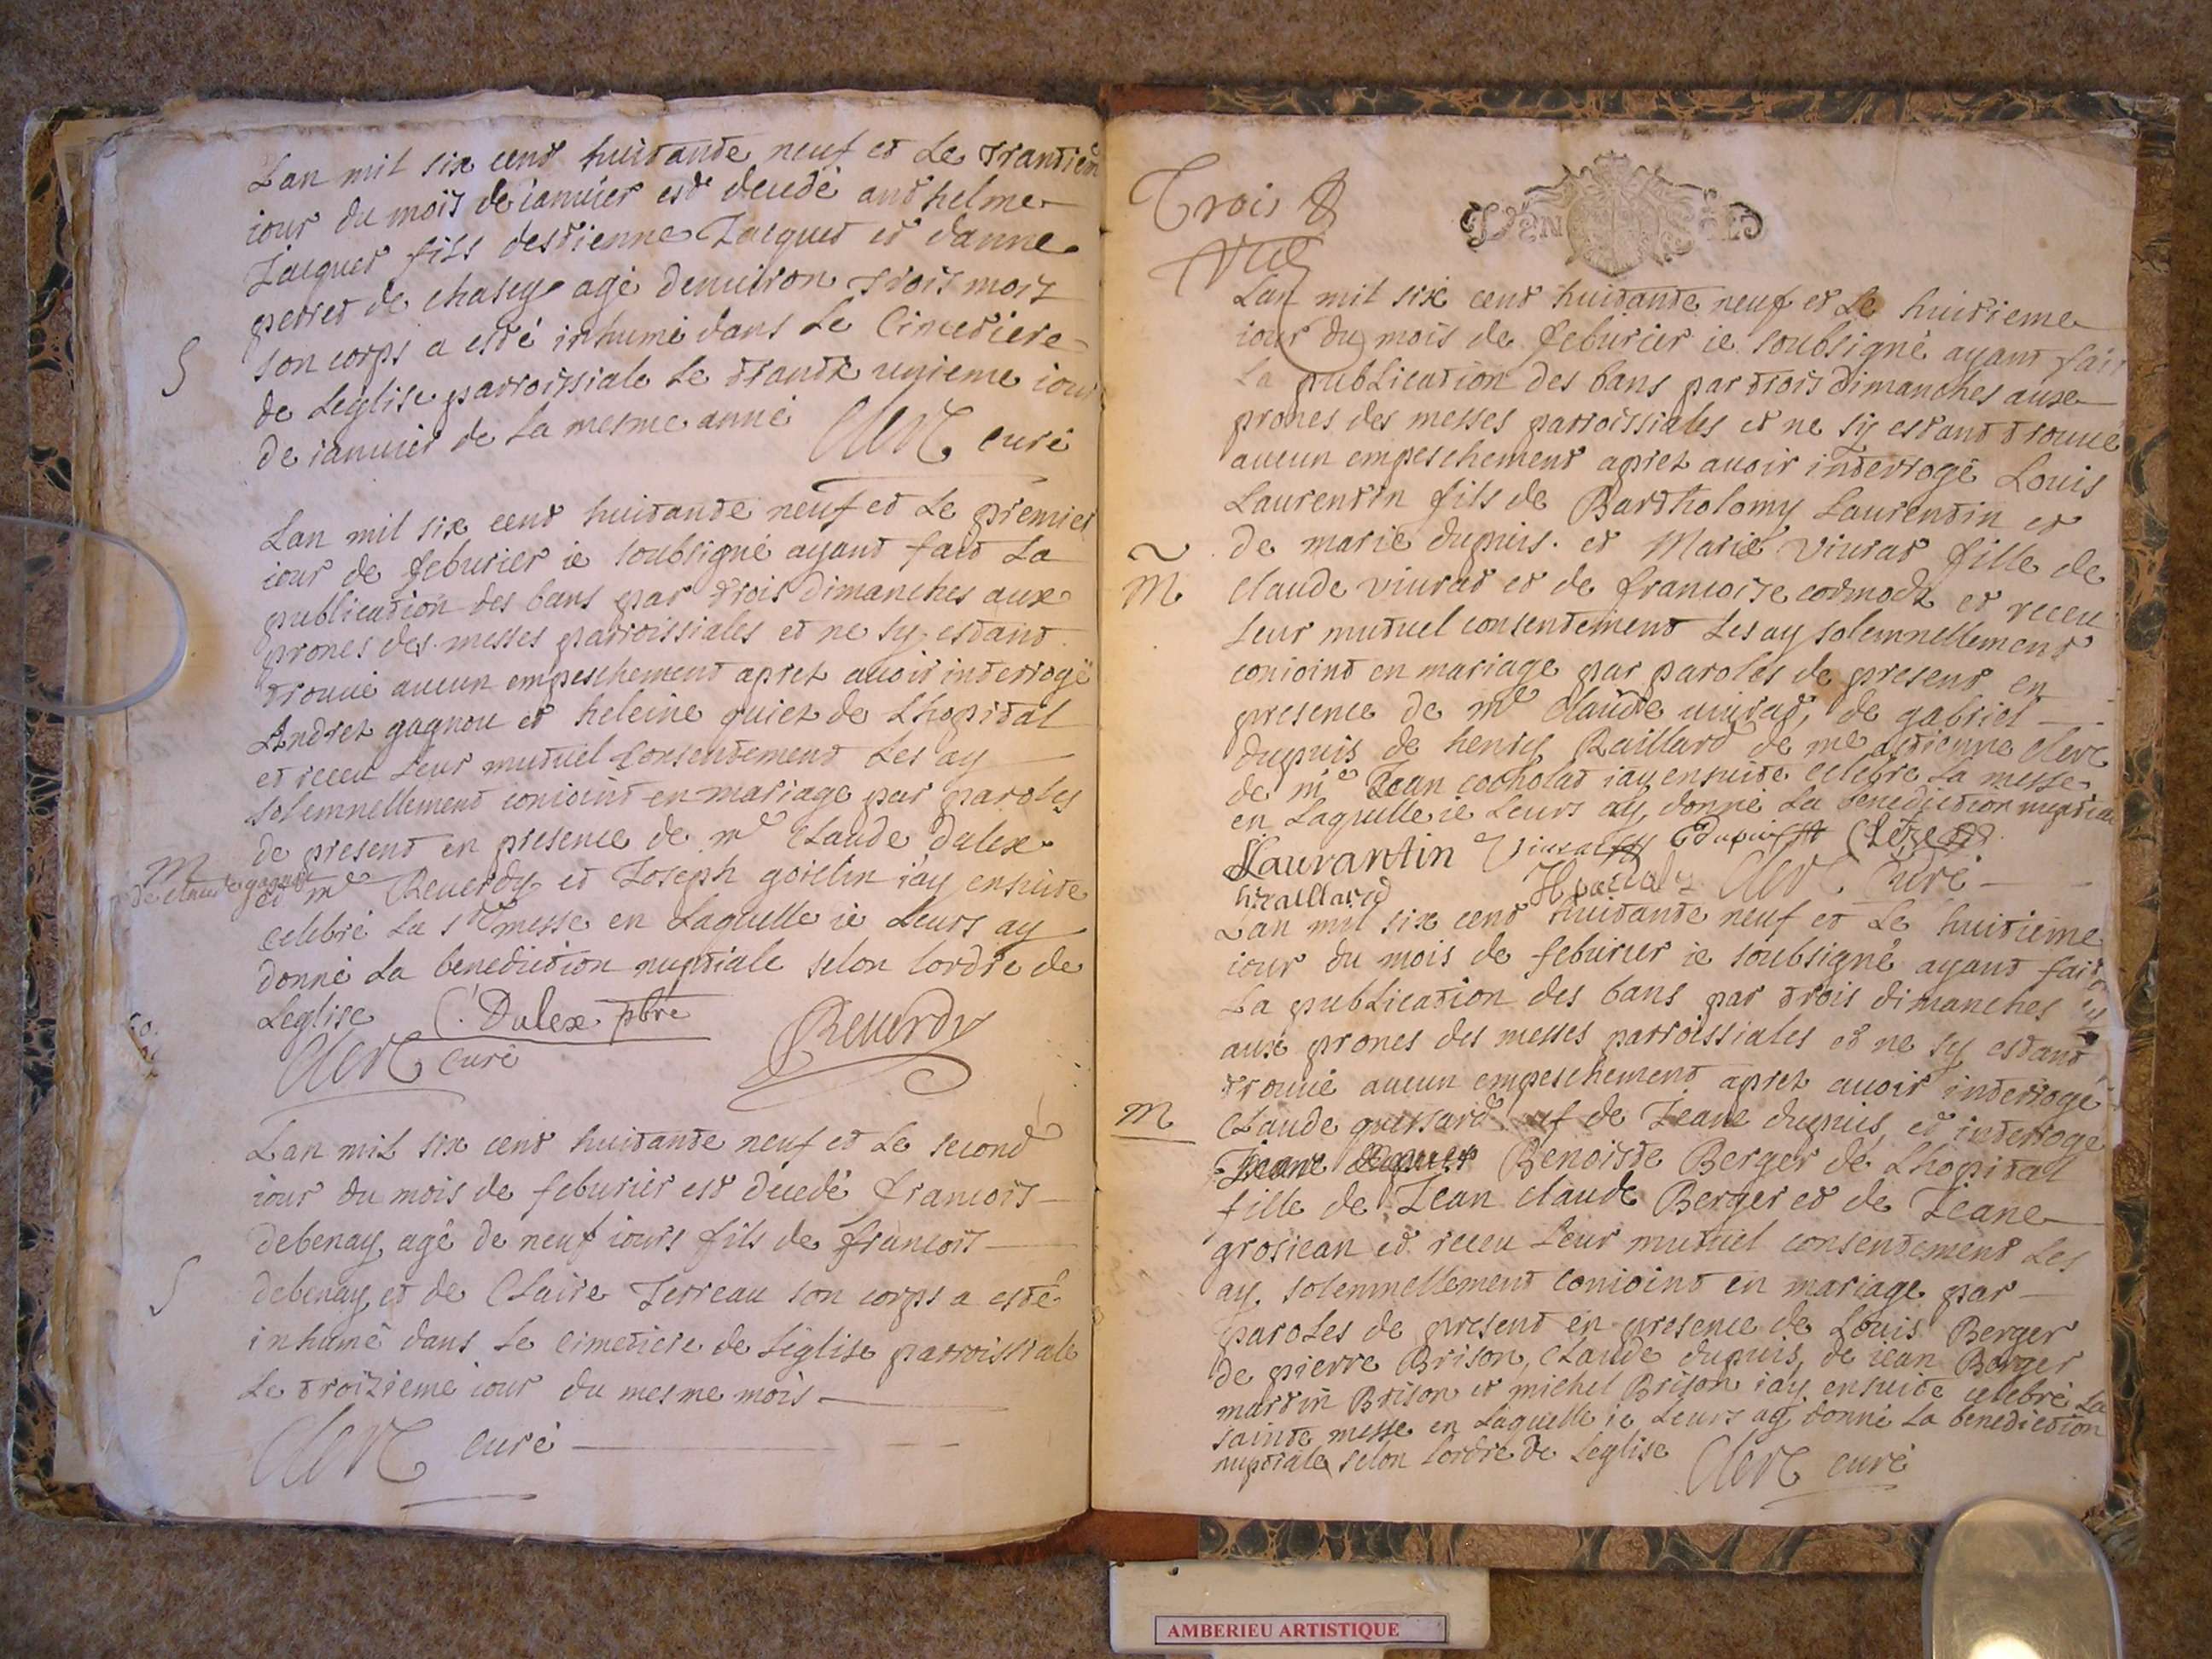 Lan mil six cent huitante neuf et Le trantiem
iour du mois de ianuier est decedé anthelme
Jacquet fils destienne Jacquet et danne
perret de chasey agé denuiron trois mois
son corps a esté inhumé dans Le Cimetiere
S
de Leglise parroissiale Le trante unieme iour
de ianuier de La mesme anné Clerc curé
Lan mil six cent huitante neuf et Le premier
iour de feburier ie soubsigné ayant fait La
publication des bans par trois dimanches aux
prones des messes parroissiales et ne sy estant
trouué aucun empeschement aprez auoir interrogé
Andrez gagnou et heleine quiez de Lhopital
et receu Leur mutuel consentement Les ay
solemnellement conioint en mariage par paroles
de present en presence de me Claude dalex
M
de claude gagnou
et me Reuerdy et Joseph goiclin iay ensuite
celebré La ste messe en Laquelle ie Leurs ay
donné La benediction nuptiale selon lordre de
Leglise C. Dalex pbre Reuerdy
Clerc curé
Lan mil six cent huitante neuf et Le second
iour du mois de feburier est decedé francois
debenay agé de neuf iours fils de francois
S
debenay et de Claire Terreau son corps a esté
inhumé dans Le cimetiere de Leglise parroissiale
Le troizieme iour du mesme mois
Clerc curé
Trois
GEN
Lan mil six cent huitante neuf et Le huitieme
iour du mois de feburier ie soubsigné ayant fait
La publication des bans par trois dimanches aux
prones des messes parroissiales et ne sy estant trouué
aucun empeschement aprez auoir interrogé Louis
Laurentin fils de Bartholomy Laurentin et
de marie dupuis. et Marie viurat fille de
M
Claude viurat et de francoise cormodz et receu
Leur mutuel consentement Les ay solemnellement
conioint en mariage par paroles de present en
presence de me Claude uiurat, de gabriel
dupuis de henry Raillard de me estienne Clerc
de me Jean cocholat iay ensuite celebré La messe
en Laquelle ie Leurs ay donné La benediction nuptiale
Laurantin Viurat Dupuis Clerc
hraillard Clerc Curé
Lan mil six cent huitante neuf et Le huitieme
iour du mois de feburier ie soubsigné ayant fait
La publication des bans par trois dimanches
aux prones des messes parroissiales et ne sy estant
trouué aucun empeschement aprez auoir interrogé
M
Claude quissard uef de Jeane dupuis et interrogé
Benoiste Berger de Lhopital
fille de Jean claude Berger et de Jeane
grosiean et receu Leur mutuel consentement Les
ay solemnellement conioint en mariage par
paroles de present en presence de Louis Berger
de pierre Brison, Claude dupuis, de iean Berger
martin Brison et michel Brison iay ensuite celebré La
sainte messe en Laquelle ie Leurs ay donné La benediction
nuptiale selon lordre de Leglise Clerc curé
AMBERIEU ARTISTIQUE